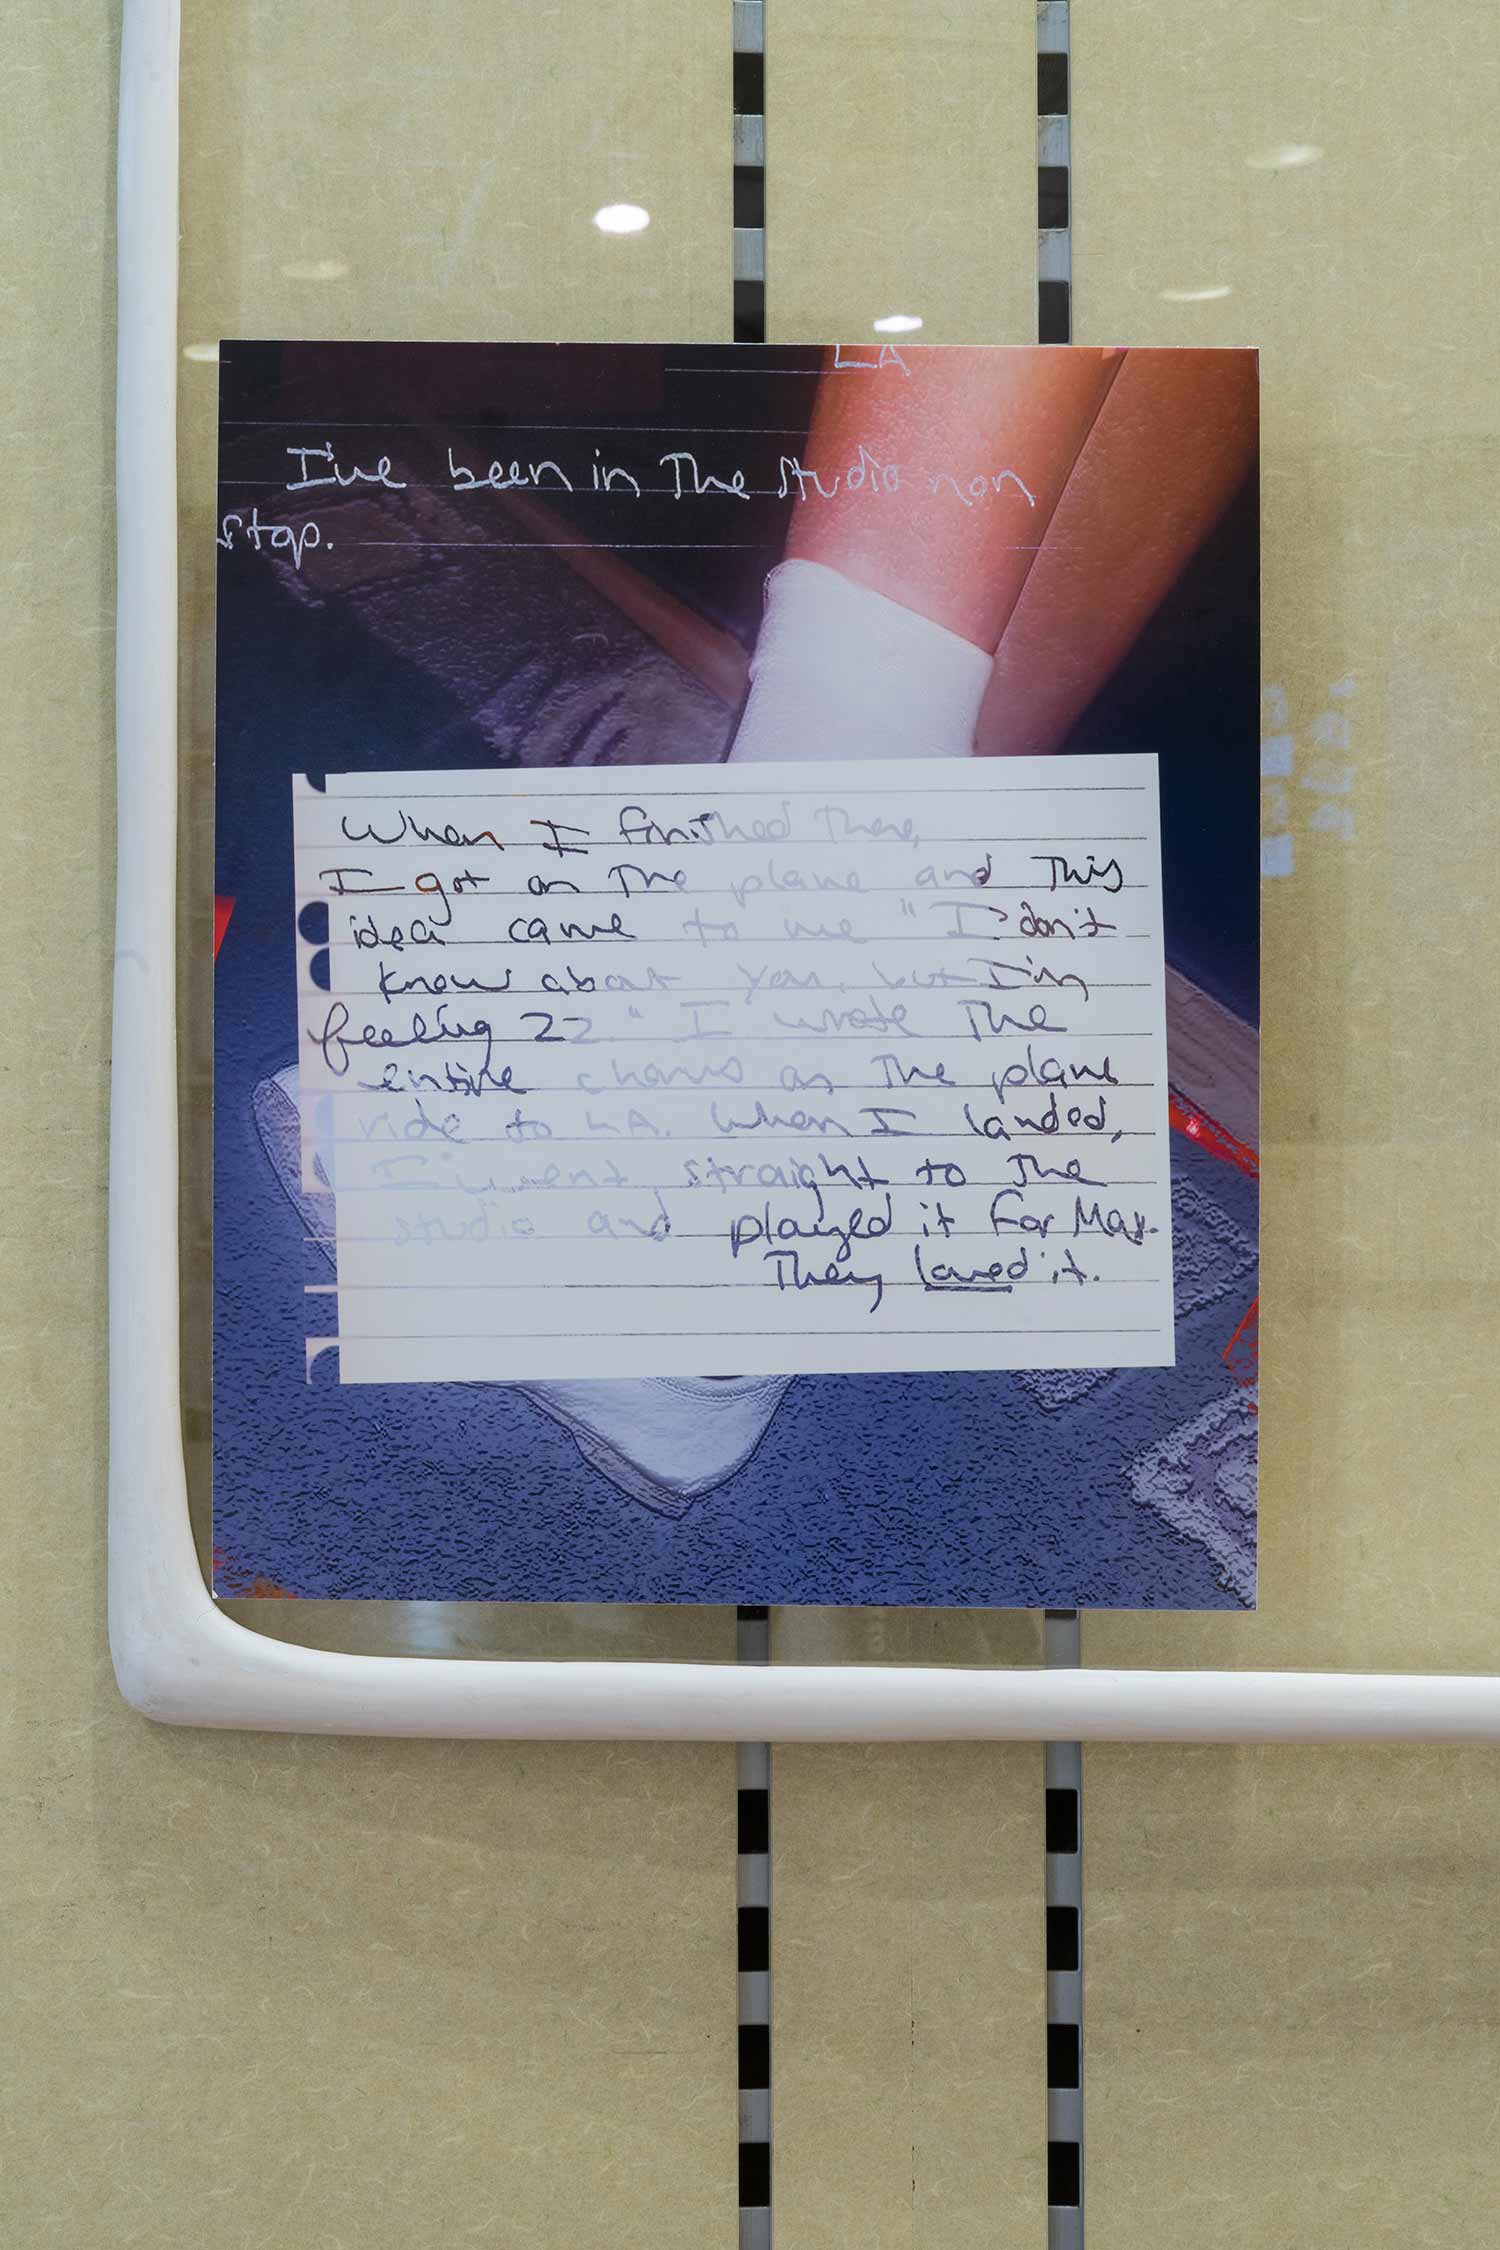 LA
I've been in The studio non
stop.
When I finished There,
I got on The plane and This
idea came to me "I don't
know about you, but I'm
feeling 22." I wrote The
entire chorus on The plane
ride to LA. When I landed,
I went straight to The
studio and played it for Max.
They loved it.